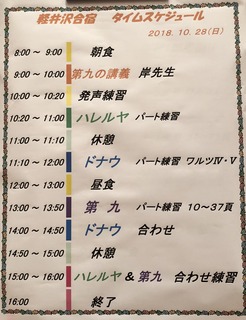 軽井沢合宿 タイムスケジュール
2018.10.28(日)
8:00～ 9:00 朝食
9:00～10:00 第九の講義 岸先生
10:00～10:20 発声練習
10:20～11:00 ハレルヤ パート練習
11:00～11:10 休憩
11:10～12:00 ドナウ パート練習 ワルツⅣ・Ⅴ
12:00～13:00 昼食
13:00～13:50 第 九 パート練習 10～37頁
14:00～14:50 ドナウ 合わせ
14:50～15:00 休憩
15:00～16:00 ハレルヤ & 第九 合わせ練習
16:00 終了